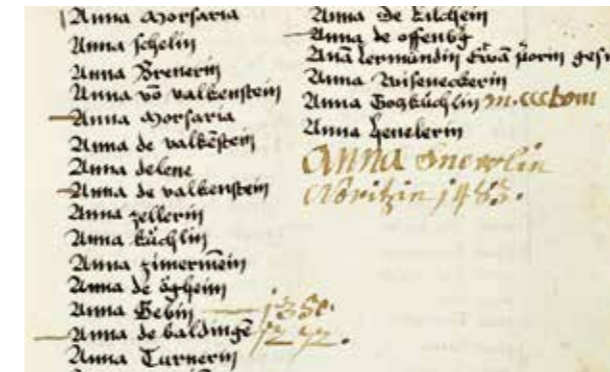 Anna Morsaria
Anna schelin
Anna Brenerin
Anna vō valkenstein
Anna Morsaria
Anna de valkēstein
Anna delene
Anna de valkenstein
Anna zellerin
Anna küchlin
Anna zimermēin
Anna de ögheim
Anna Gebin 1350.
Anna de baldingē
Anna Turnerin
Anna de kilchein
Anna de offenbg
Anna
Anna Wiseneckerin
Anna
Anna Henelerin
Anna Snewlin
1483.